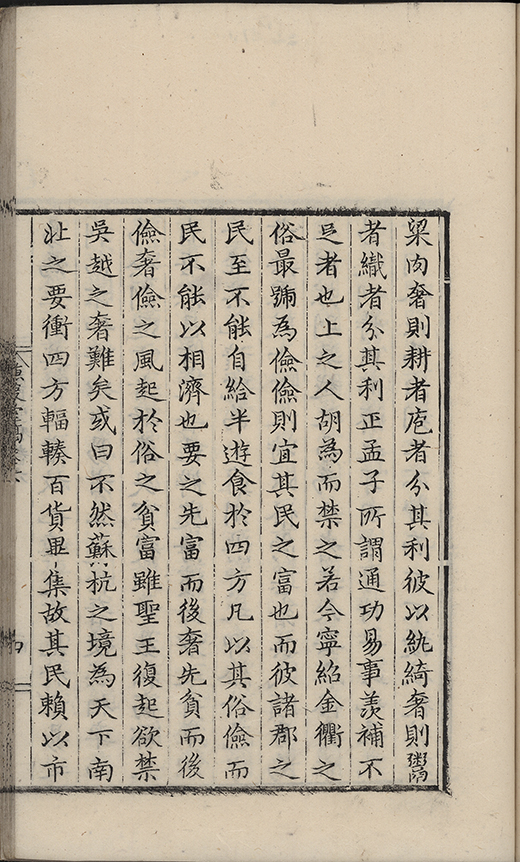 梁肉奢則耕者庖者分其利彼以紈綺奢則鬻
者織者分其利正孟子所謂通功易事羨補不
足者也上之人胡為而禁之若今寧紹金衢之
俗最號為儉儉則宜其民之富也而彼諸郡之
民至不能自給半遊食於四方凡以其俗儉而
民不能以相濟也要之先富而後奢先貧而後
儉奢儉之風起於俗之貧富雖聖王復起欲禁
吳越之奢難矣或曰不然蘇杭之境為天下南
北之要衝四方輻輳百貨畢集故其民賴以市